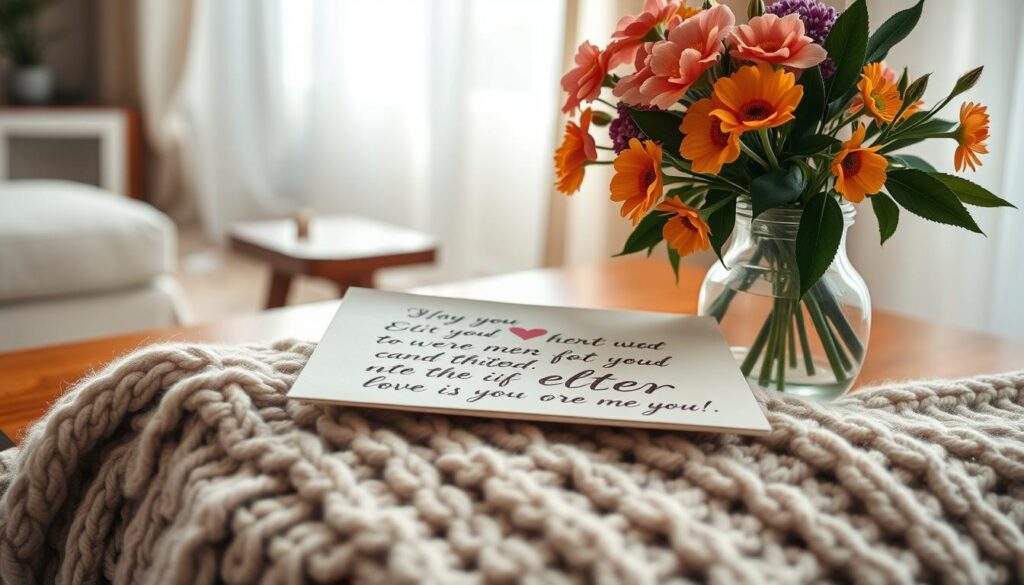 Hay you
Etit youd hent wed
to were men fot youd
cand thited.
nte the iif elter
love is you ore me you!.